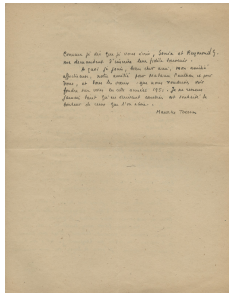 Comme je dis que je vous écris, Sonia et Raymond G.
me demandent d'inscrire leur fidèle souvenir.
A quoi je joins, bien cher ami, mon amitié
affectueuse, notre amitié pour Madame et pour
vous, et tous les vœux que nous voudrions voir
fondre sur vous en cette année 1951. Je ne
jamais tant qu'en écrivant combien est souhaité le
bonheur de ceux que l'on aime.